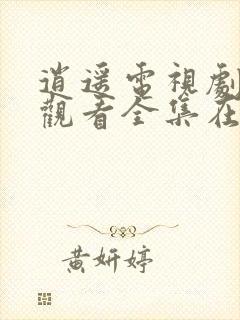 逍遥電視劇
觀看全集在
黄妍婷